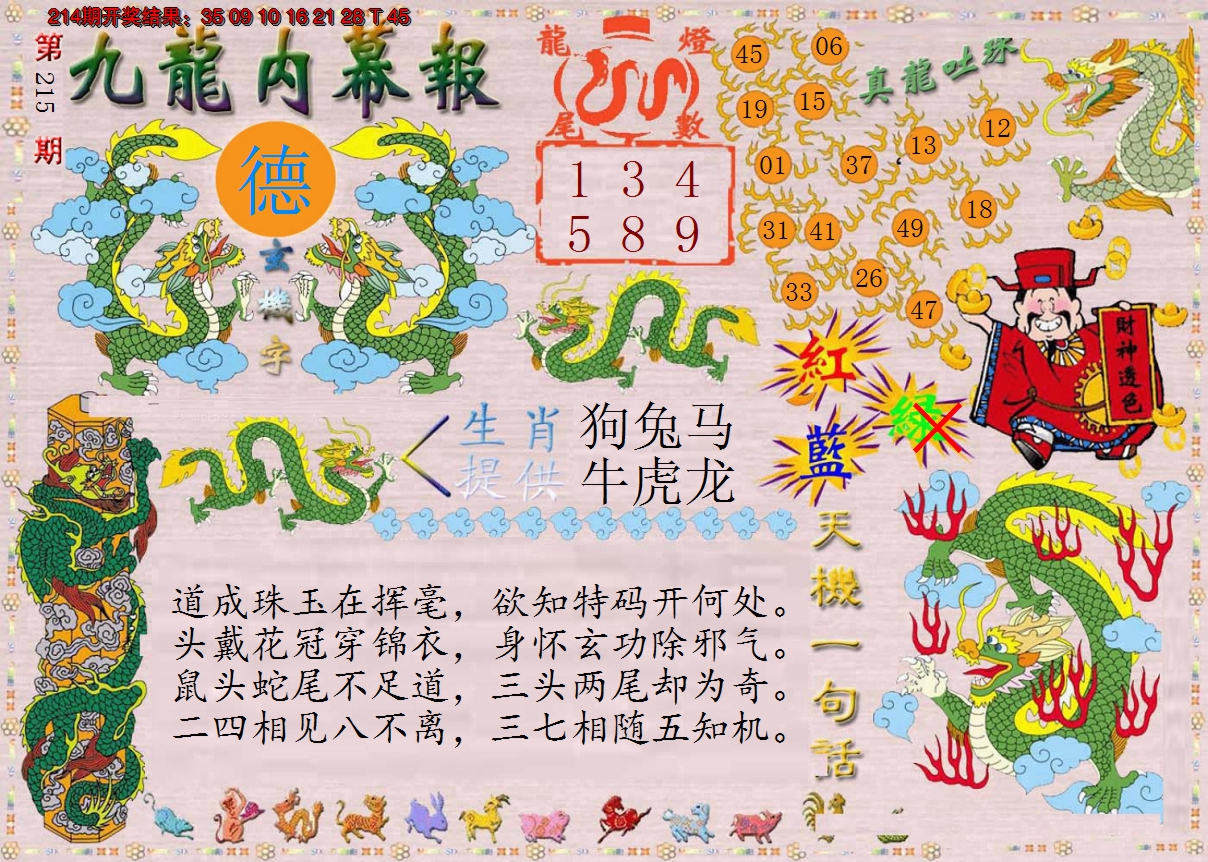 214期开奖结果：35 09 10 16 21 28 T 45
第215期
九龍内幕報
德
玄機字
龍燈
尾數
1 3 4
5 8 9
真龍吐珠
45 06
19 15
13 12
01 37
18
31 41 49
33 26
47
財神透色
紅
綠
藍
生肖 狗兔马
提供 牛虎龙
天機一句话
道成珠玉在挥毫，欲知特码开何处。
头戴花冠穿锦衣，身怀玄功除邪气。
鼠头蛇尾不足道，三头两尾却为奇。
二四相见八不离，三七相随五知机。